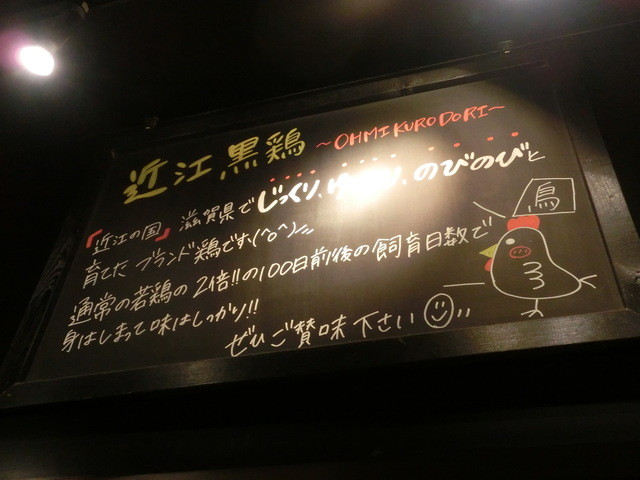 近江黒鶏 ～OHMI KURODORI～
『近江の国』滋賀県でじっくり、ゆっくり、のびのびと
育てたブランド鶏です(^o^)
通常の若鶏の2倍!!の100日前後の飼育日数で
身はしまって味はしっかり!!
ぜひご賛味下さい
鳥